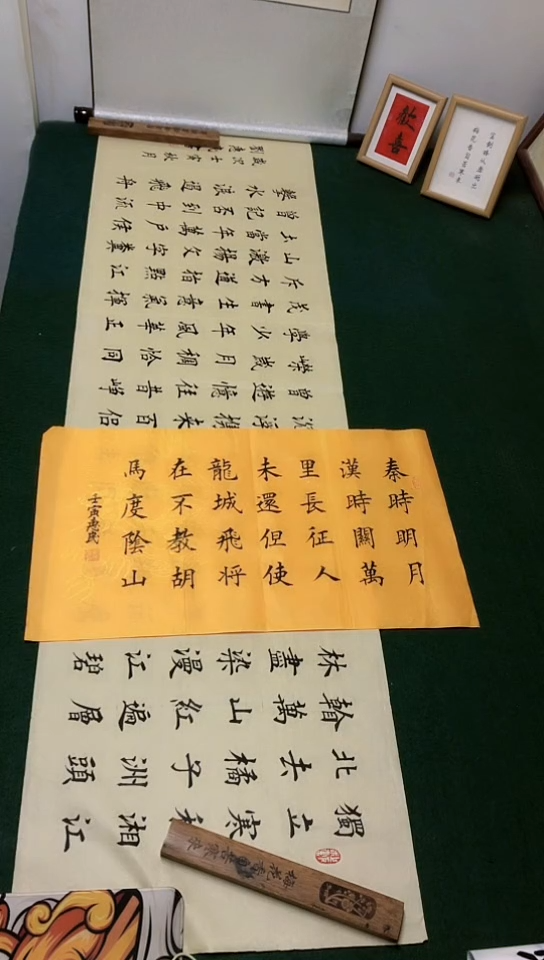 歡喜
宝剑锋从磨砺出
梅花香自苦寒来
秦時明月
漢時關萬
里長征人
未還但使
龍城飛将
在不教胡
馬度陰山
壬寅惠民
獨立寒秋湘江
北去橘子洲頭
看萬山紅遍層
林盡染漫江碧
浮攜來百侶
曾遊憶往昔崢
嶸歲月稠恰同
學少年風華正
茂書生意氣揮
斥方遒指點江
山激揚文字糞
土當年萬户侯
曾記否到中流
擊水浪遏飛舟
歲次壬寅秋月